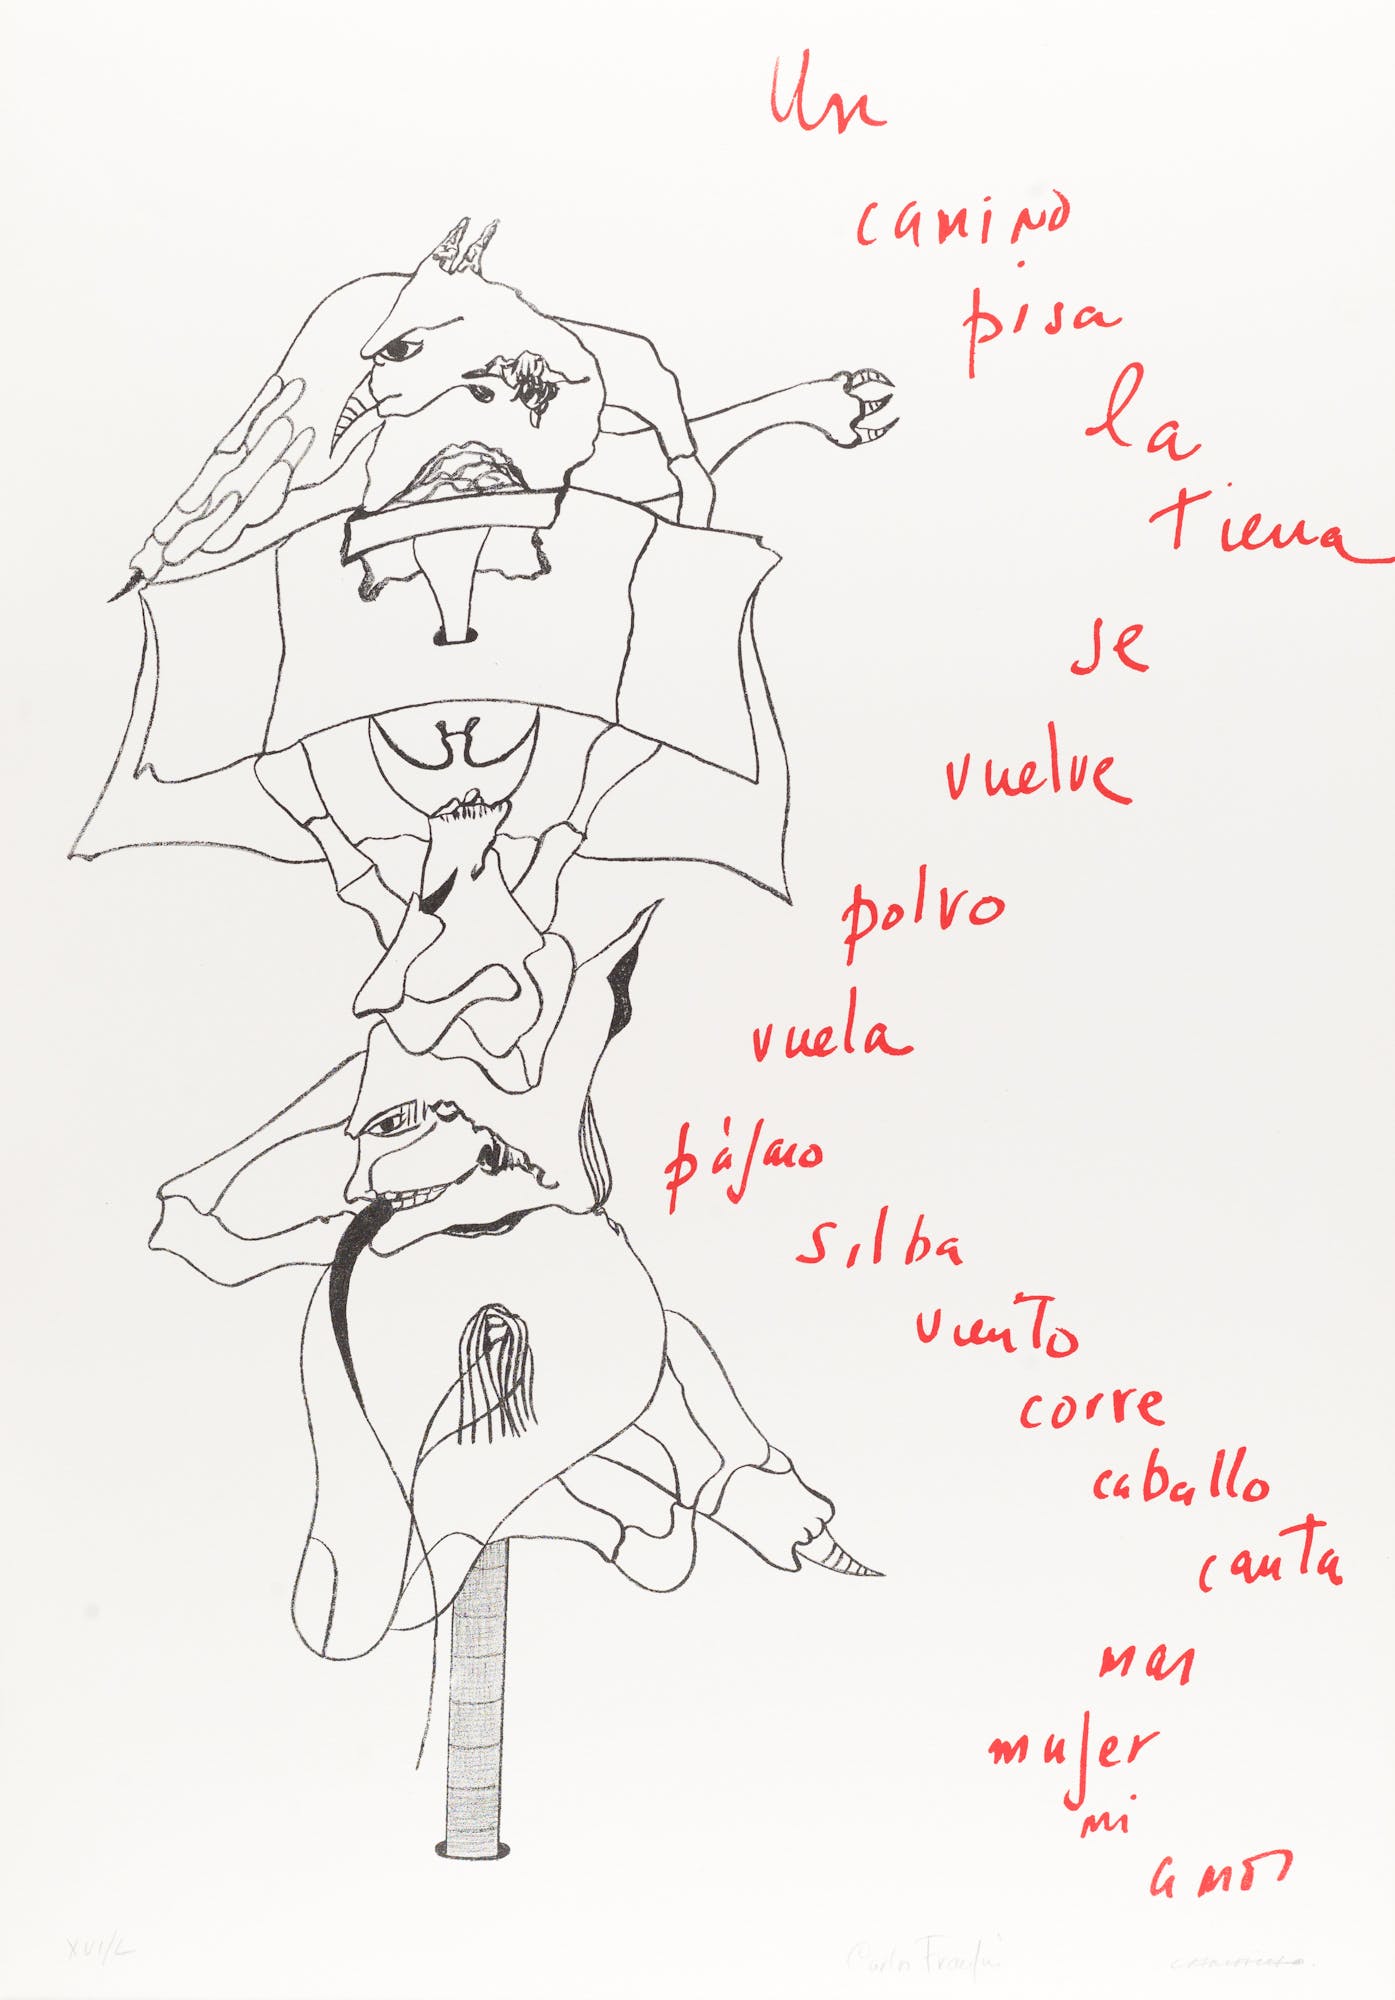 Un
camino
pisa
la
tierra
se
vuelve
polvo
vuela
pájaro
silba
viento
corre
caballo
canta
mar
mujer
mi
amor
XVI/L Carlos Franqui